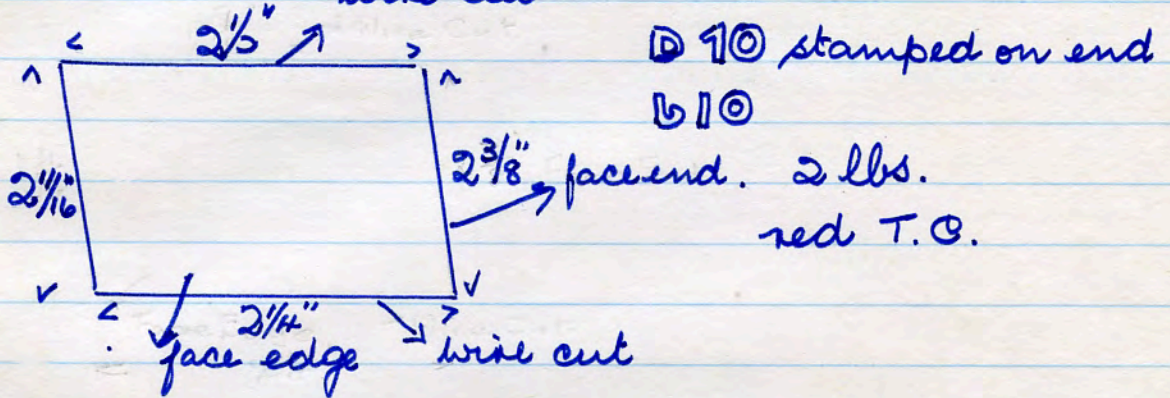 wire cut
2 1/2"
D 10 stamped on end
L 10
2 1/16"
2 3/8"
face end. 2 lbs.
red T.C.
2 1/4"
face edge
wire cut